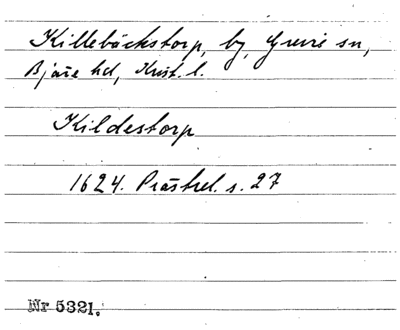 Killebäckstorp, by, Grevie sn,
Bjäre hd, Krist. l.
Kildestorp
1624. Prästrel. s. 27
Nr 5321.